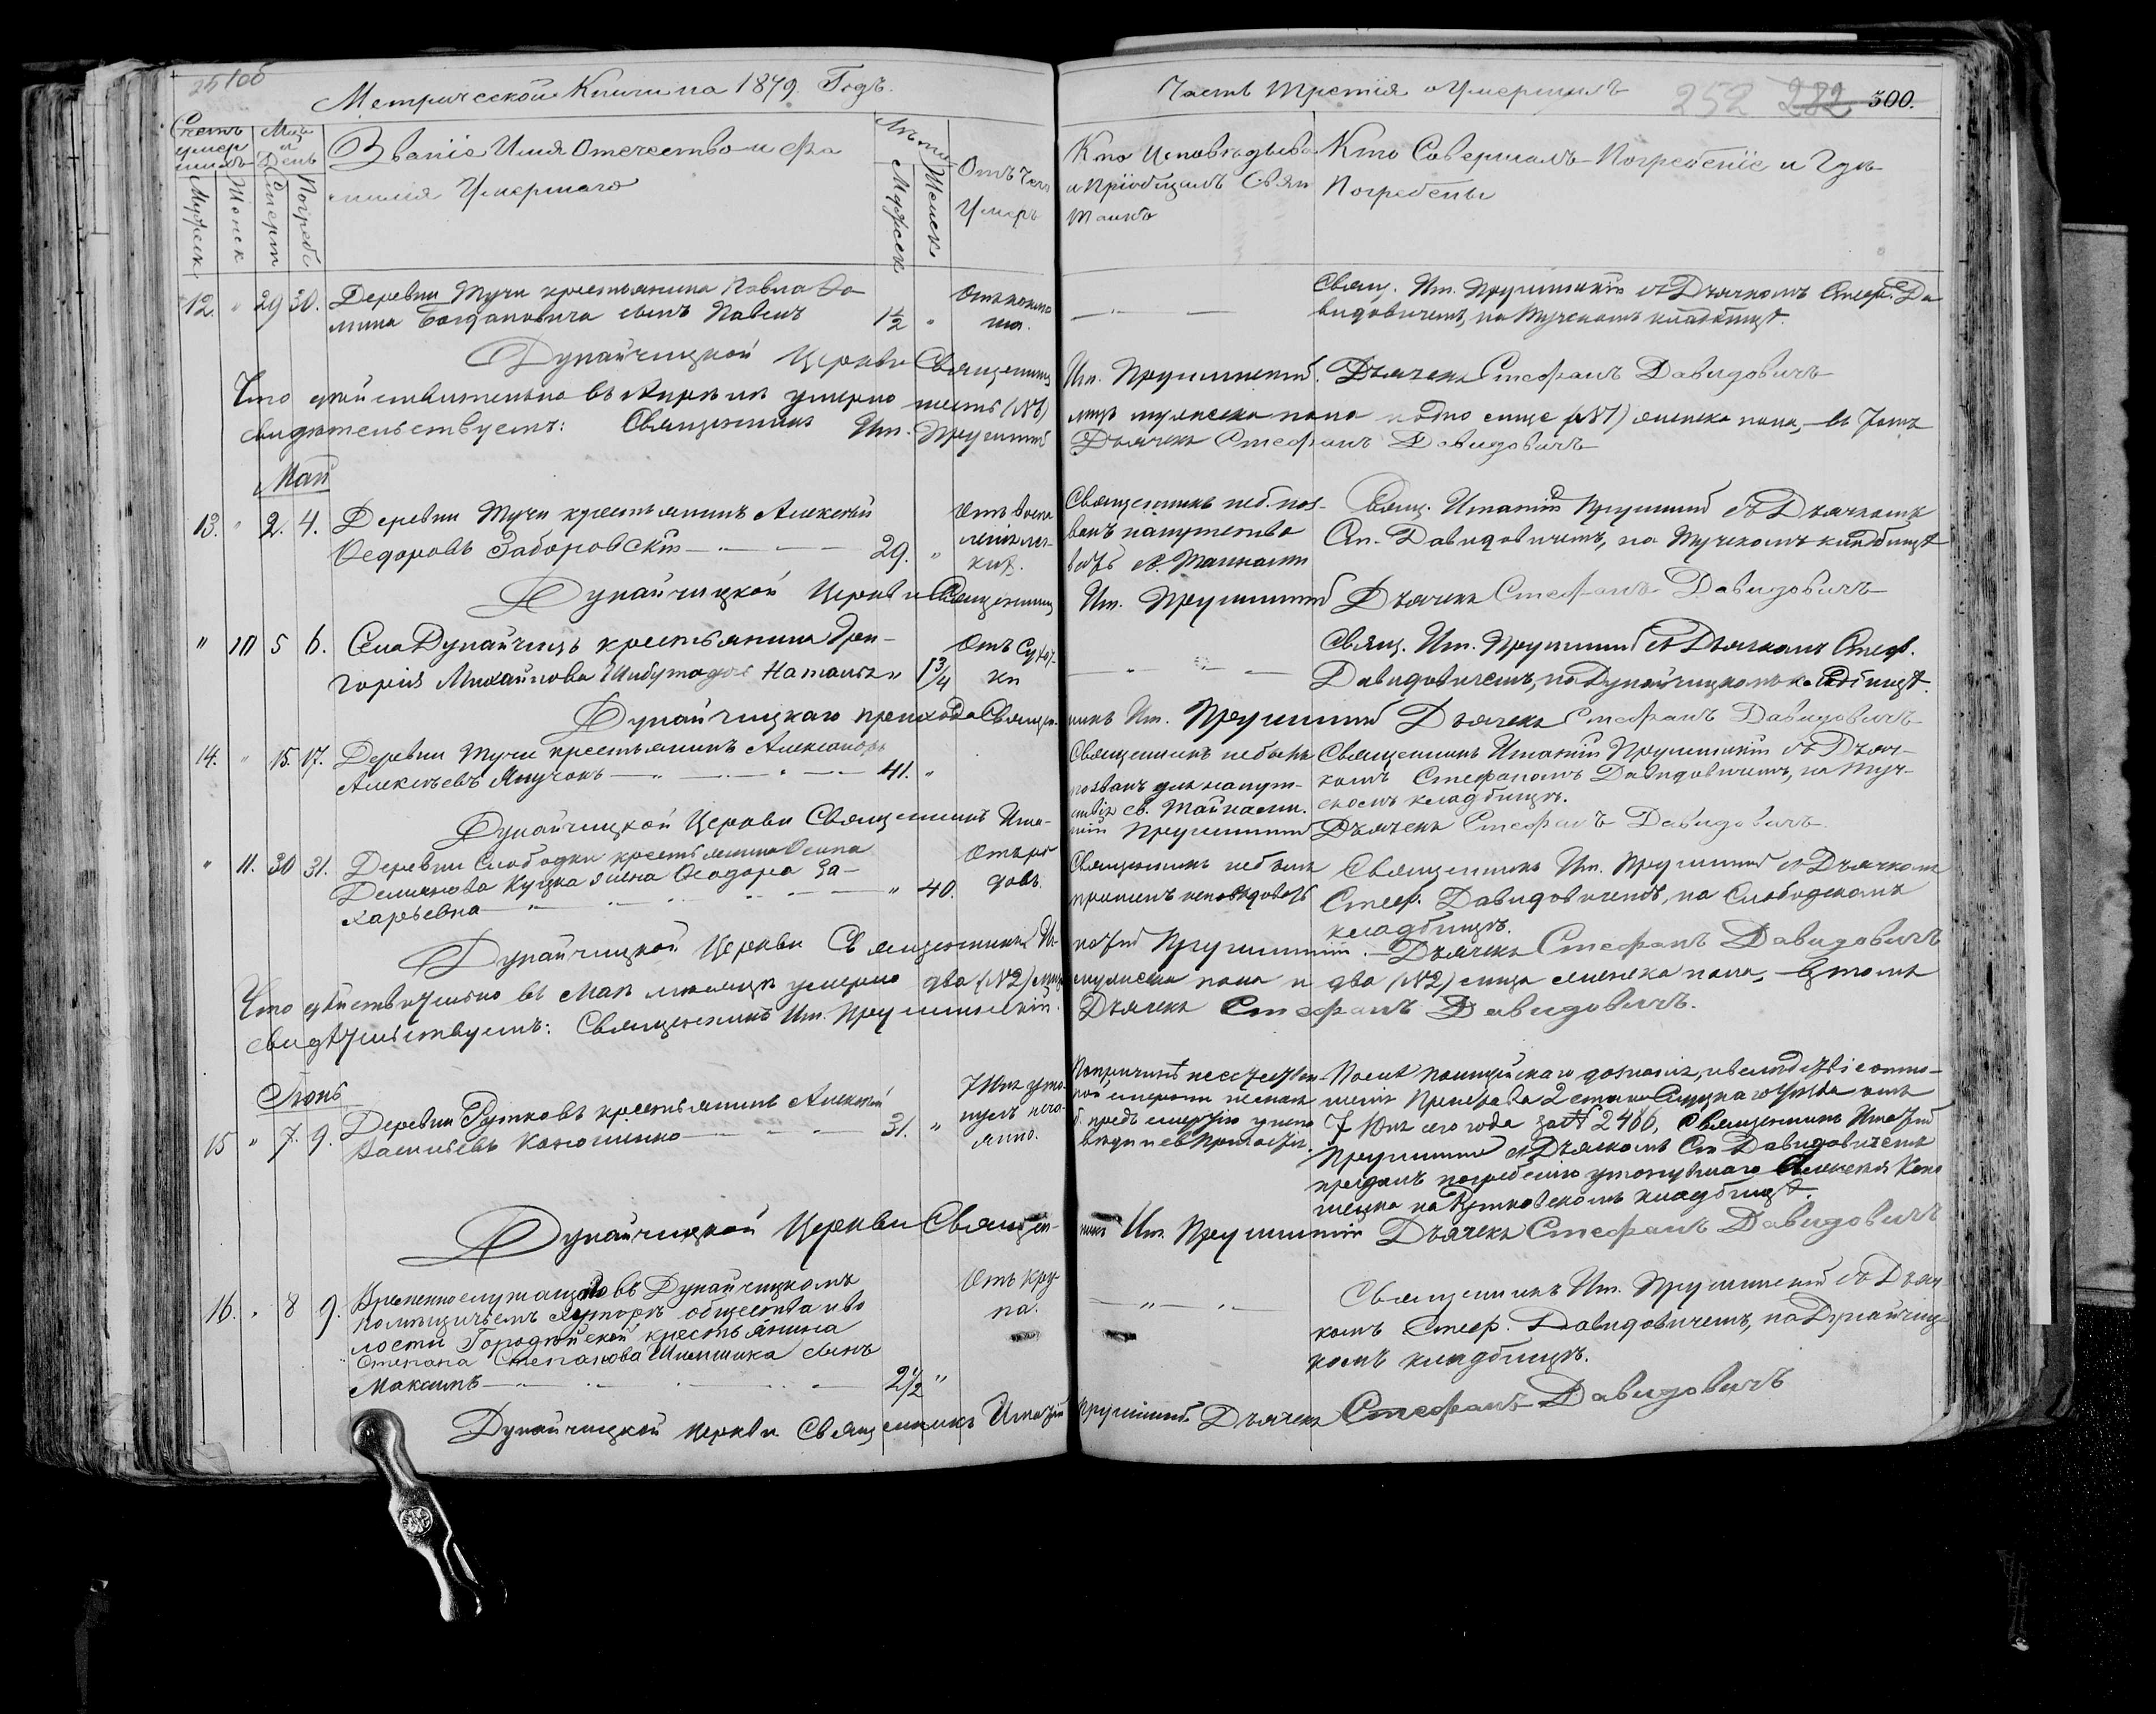 Метрической Книги на 1879. Годъ.
Часть Третія о Умершихъ 252 282 300.
Счетъ умершихъ
Мужеск.
Женск
Мѣс. и День
Смерти
Погреб.
Званіе Имя Отечество и Фамилія Умершаго
Лѣта
Мужеск
Женск
Отъ Чего Умеръ
Кто Исповѣдывалъ
и Пріобщалъ Свят
Таинъ
Кто Совершалъ Погребеніе и Гдѣ
Погребены
12. " 29 30. Деревни Тучи крестьянина Павла
Богдановича сынъ Павелъ 1½ "
Свящ. Иг. Прушинскій съ Дьячкомъ Стеф. Да
видовичемъ, на Тучскомъ кладбищѣ.
Дунайчицкой Церкви Священникъ Иг. Прушинскій. Дьячекъ Стефанъ Давидовичъ
Что дѣйствительно въ Апрѣлѣ умерло шесть (№6) лицъ мужеска пола и одно лице (№1) женска пола, – въ томъ
свидѣтельствуемъ: Священникъ Иг. Прушинскій Дьячекъ Стефанъ Давидовичъ
Май
13. " 2. 4. Деревни Тучи крестьянинъ Алексѣй
Ѳедоровъ Заборовскій 29. "
Отъ воспа
ленія лег-
кихъ.
Священникъ не б. поз-
ванъ напутство
вать с. Тайнами
Свящ. Игнатій Прушинскій съ Дьячкомъ
Ст. Давидовичемъ, на Тучскомъ кладбищѣ
Дунайчицкой Церкви Священникъ Иг. Прушинскій Дьячекъ Стефанъ Давидовичъ
" 10 5 6. Села Дунайчицъ крестьянина Гри-
горія Михайлова Наталія " 1¾
Отъ Сухот-
ки
Свящ. Иг. Прушинскій съ Дьячкомъ Стеф.
Давидовичемъ, на Дунайчицкомъ кладбищѣ.
Дунайчицкаго прихода Священникъ Иг. Прушинскій Дьячекъ Стефанъ Давидовичъ
14. " 15. 17. Деревни Тучи крестьянинъ Александръ
Алексѣевъ Янучокъ 41. "
Священникъ не былъ
позванъ для напут-
ствія св. Тайнами.
Священникъ Игнатій Прушинскій съ Дьяч-
комъ Стефаномъ Давидовичемъ, на Туч-
скомъ кладбищѣ.
Дунайчицкой Церкви Священникъ Игнатій Прушинскій Дьячекъ Стефанъ Давидовичъ
" 11. 30 31. Деревни Слободки крестьянина Осипа
Демьянова Куцка жена Ѳеодора За-
харьевна " 40.
Отъ ро
довъ.
Священникъ не былъ
исповѣдовать
Священникъ Иг. Прушинскій съ Дьячкомъ
Стеф. Давидовичемъ, на Слободскомъ
кладбищѣ.
Дунайчицкой Церкви Священникъ Игнатій Прушинскій. Дьячекъ Стефанъ Давидовичъ
Что дѣйствительно въ Маѣ мѣсяцѣ умерло два (№2) лица мужеска пола и два (№2) лица женска пола, – въ томъ
свидѣтельствуемъ: Священникъ Иг. Прушинскій. Дьячекъ Стефанъ Давидовичъ.
Іюнь
15 " 7. 9. Деревни Рутковъ крестьянинъ Алексѣй
Васильевъ Кононенко 31. "
7 Юня уто-
нулъ неча-
янно.
По причинѣ несчастли-
вой смерти
Послѣ полицейскаго дознанія, и вслѣдствіе отно-
шенія Пристава 2 стана Слуцкаго Уѣзда отъ
7 Юня сего года за № 2466, Священникъ Игнатій
Прушинскій съ Дьячкомъ Ст. Давидовичемъ
предалъ погребенію утонувшаго Алексея Коно
ненка на Рутковскомъ кладбищѣ.
Дунайчицкой Церкви Священникъ Иг. Прушинскій Дьячекъ Стефанъ Давидовичъ
16. " 8 9. Временно служащаго въ Дунайчицкомъ
помѣщичьемъ хуторѣ общества и во
лости Городейской крестьянина
Степана Степанова сынъ
Максимъ 2½ "
Отъ кру-
па.
Священникъ Иг. Прушинскій съ Дьяч
комъ Стеф. Давидовичемъ, на Дунайчиц
комъ кладбищѣ.
Дунайчицкой церкви Священникъ Игнатій Прушинскій Дьячекъ Стефанъ Давидовичъ